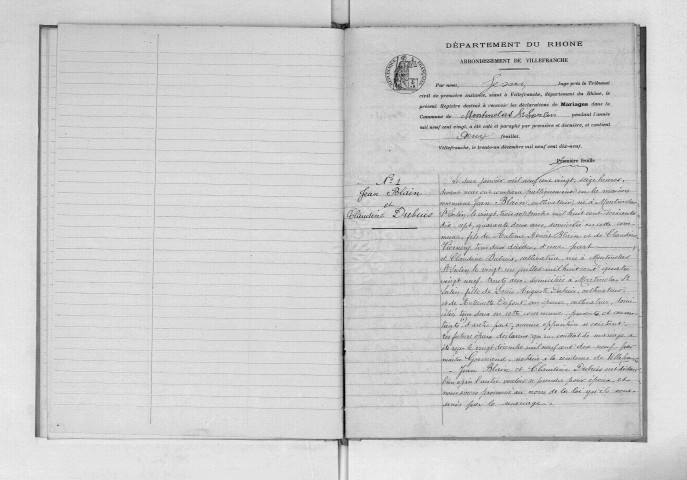 DÉPARTEMENT DU RHONE
ARRONDISSEMENT DE VILLEFRANCHE
Par nous, Juge près le Tribunal
civil de première instance, séant à Villefranche, département du Rhône, le
présent Registre destiné à recevoir les déclarations de Mariages dans la
Commune de Montmelas St Sorlin pendant l'année
mil neuf cent vingt, a été coté et paraphé par première et dernière, et contient
feuillet.
Villefranche, le trente-un décembre mil neuf cent dix-neuf.
Première feuille
N° 1
Jean Blain
et
Claudine Dubuis
Le onze janvier mil neuf cent vingt, seize heures,
devant nous ont comparu publiquement en la maison
commune Jean Blain, cultivateur, né à Montmelas
St Sorlin, le vingt trois septembre mil huit cent soixante
dix sept, quarante deux ans, domicilié en cette com-
mune, fils de Antoine Blain et de Claudine
tous deux décédés, d'une part
et Claudine Dubuis, cultivatrice, née à Montmelas
St Sorlin le vingt un juillet mil huit cent quatre
vingt neuf, trente ans, domiciliée à Montmelas St
Sorlin, fille de Louis Auguste Dubuis, cultivateur
et de Antoinette son épouse, cultivatrice, domi-
ciliés tous deux en cette commune, présents et consen-
tants d'autre part, aucune opposition n'existant.
Les futurs époux déclarent qu'un contrat de mariage a
été reçu le vingt décembre mil neuf cent dix neuf par
maître notaire à la résidence de Villefranche
Jean Blain et Claudine Dubuis ont déclaré
l'un après l'autre vouloir se prendre pour époux et
nous avons prononcé au nom de la loi qu'ils sont
unis par le mariage.